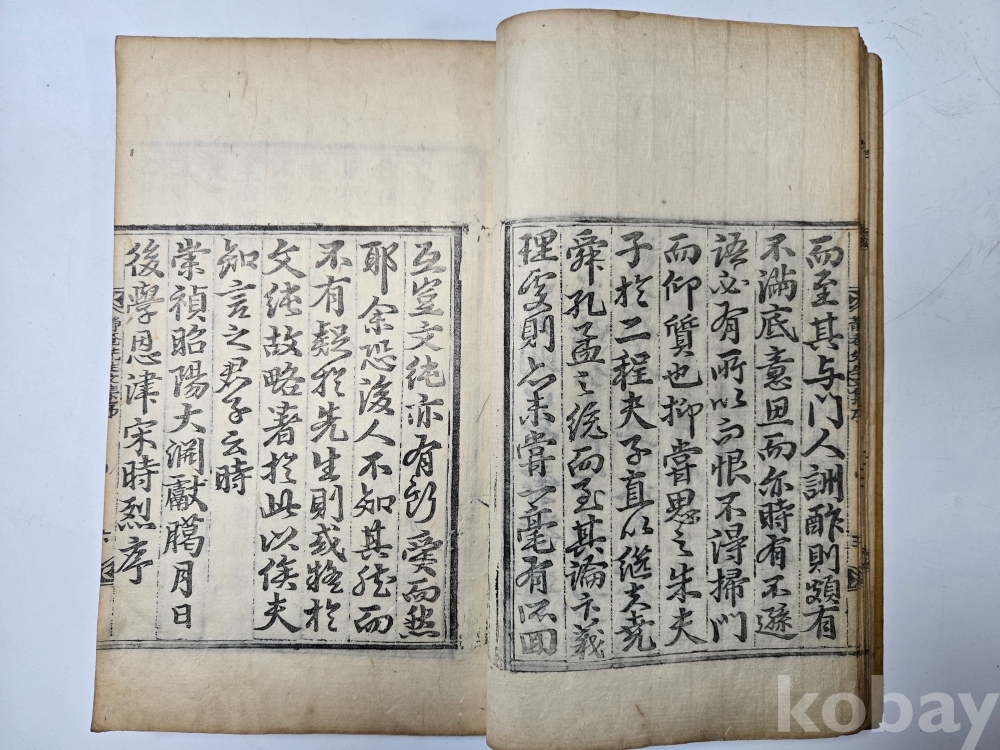 而至其与門人詶酢則頗有
不滿底意思而亦時有不遜
語必有所以而恨不得掃門
而仰質也抑嘗思之朱夫
子於二程夫子直以繼夫堯
舜孔孟之統而至其論卞義
理處則亦未嘗一毫有所回
互豈文純亦有所受而然
耶余恐後人不知其然而
不有疑於先生則或於
文純故略著於此以俟夫
知言之君子云時
崇禎昭陽大淵獻臈月日
後學恩津宋時烈序
kobay